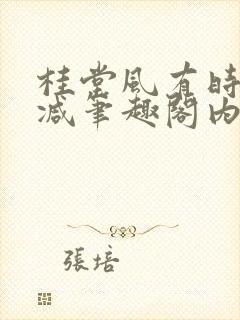 桂棠風有時
減筆趣閣內
張培